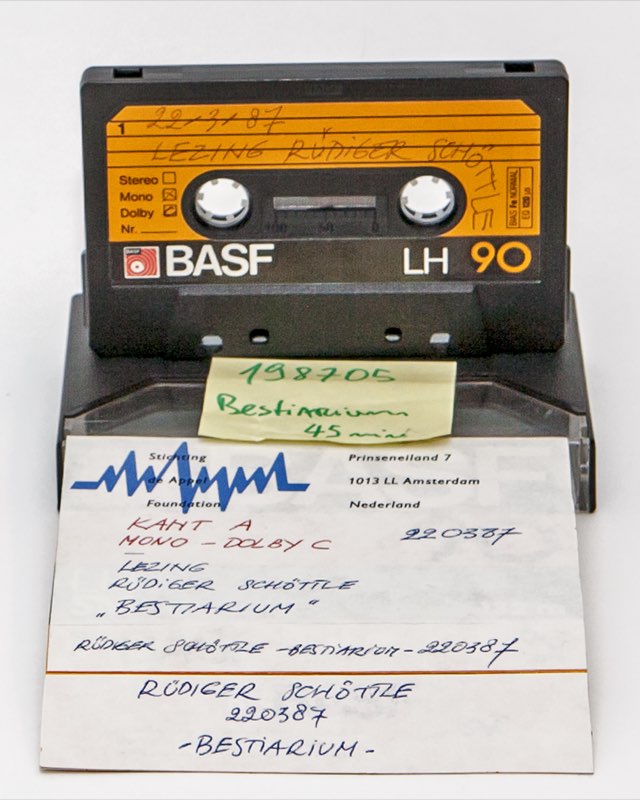 1 22/3/87
LEZING RÜDIGER SCHÖTTLE
Stereo
Mono
Dolby
Nr.
100 50 0
BIAS Fe NORMAL
EQ 120 µs
BASF
BASF LH 90
198705
Bestiarium
45 min
Stichting
de Appel
Foundation
Prinseneiland 7
1013 LL Amsterdam
Nederland
KANT A 220387
MONO - DOLBY C
LEZING
RÜDIGER SCHÖTTLE
„BESTIARIUM"
RÜDIGER SCHÖTTLE - BESTIARIUM - 220387
RÜDIGER SCHÖTTLE
220387
- BESTIARIUM -